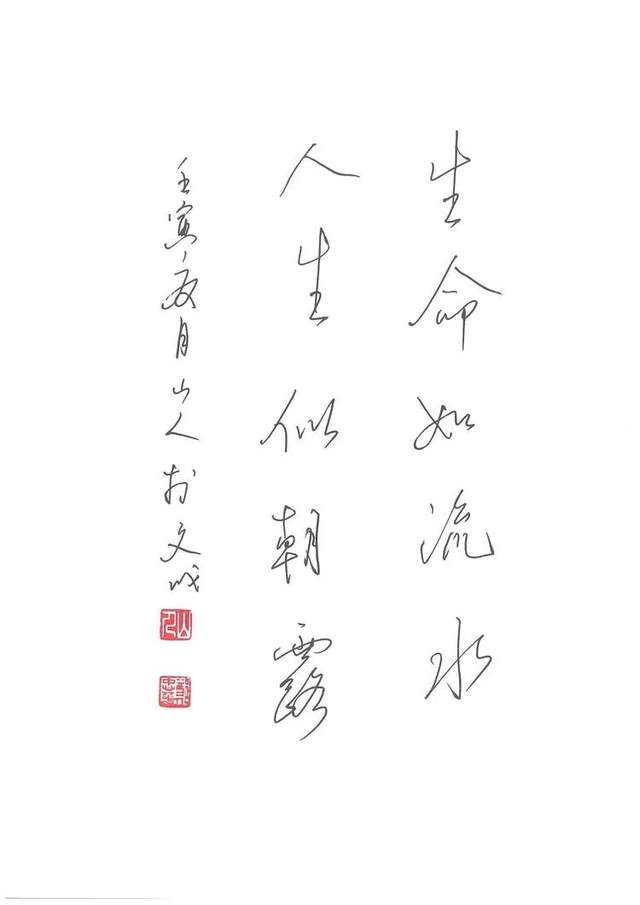 生命如流水
人生似朝露
壬寅夏月山人於文成
山人